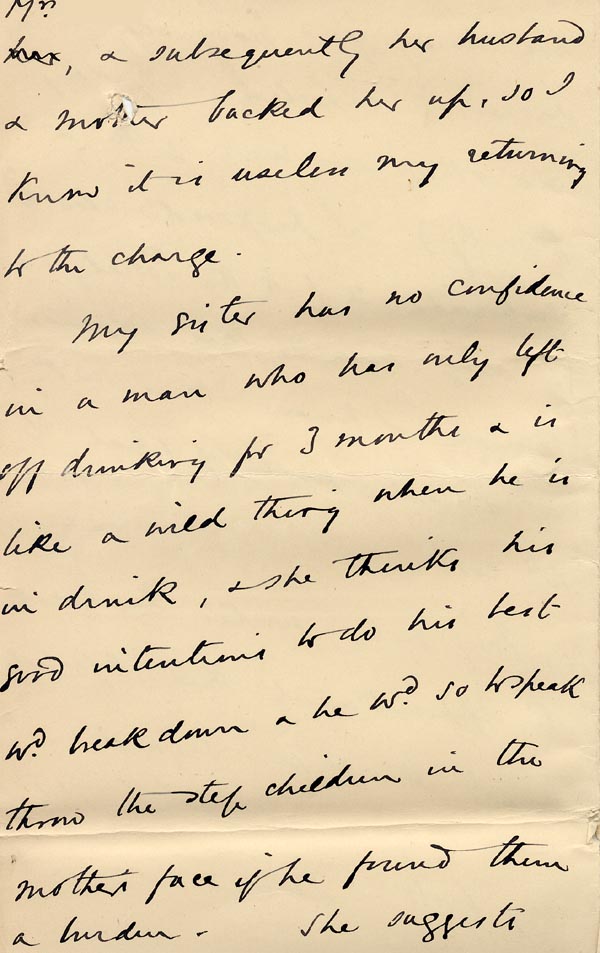 Mrs
her, & subsequently her husband
& mother backed her up, so I
know it is useless my returning
to the charge.
My sister has no confidence
in a man who has only left
off drinking for 3 months & is
like a wild thing when he is
in drink, & she thinks his
good intentions to do his best
wd break down & he wd so to speak
throw the step children in the
mother's face if he found them
a burden. She suggests